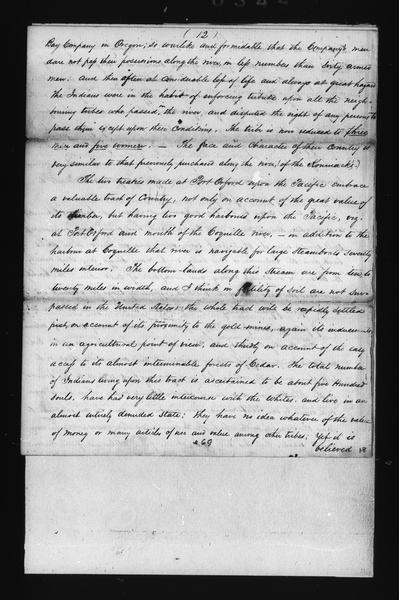 ( 12 )
Bay Company in Oregon; so warlike and formidable that the Company's men
dare not pass their possessions along the river in less number than sixty armed
men: and then often at considerable loss of life and always at great hazard
the Indians were in the habit of enforcing tribute upon all the neigh-
boring tribes who passed the river, and disputed the right of any persons to
pass them except upon these Conditions. The tribe is now reduced to three
men and five women. — The face and Character of their Country is
very similar to that previously purchased along the river, of the Konnaacks.
The two treaties made at Port Orford upon the Pacific embrace
a valuable tract of Country, not only on account of the great value of
its timber, but having two good harbours upon the Pacific, viz:
at Port Orford and mouth of the Coquille river, — in addition to the
harbour at Coquille that river is navigable for large Steamboats Seventy
miles interior. The bottom lands along this stream are from ten to
twenty miles in width, and I think in fertility of soil are not sur-
passed in the United States: the whole tract will be rapidly settled
first, on account of its proximity to the gold mines, again its inducements
in an agricultural point of view, and thirdly on account of the easy
access to its almost interminable forests of Cedar. The total number
of Indians living upon this tract is ascertained to be about five Hundred
souls, have had very little intercourse with the Whites, and live in an
almost entirely denuded State; they have no idea whatever of the value
of money or many articles of use and value among other tribes; Yet it is
269
believed